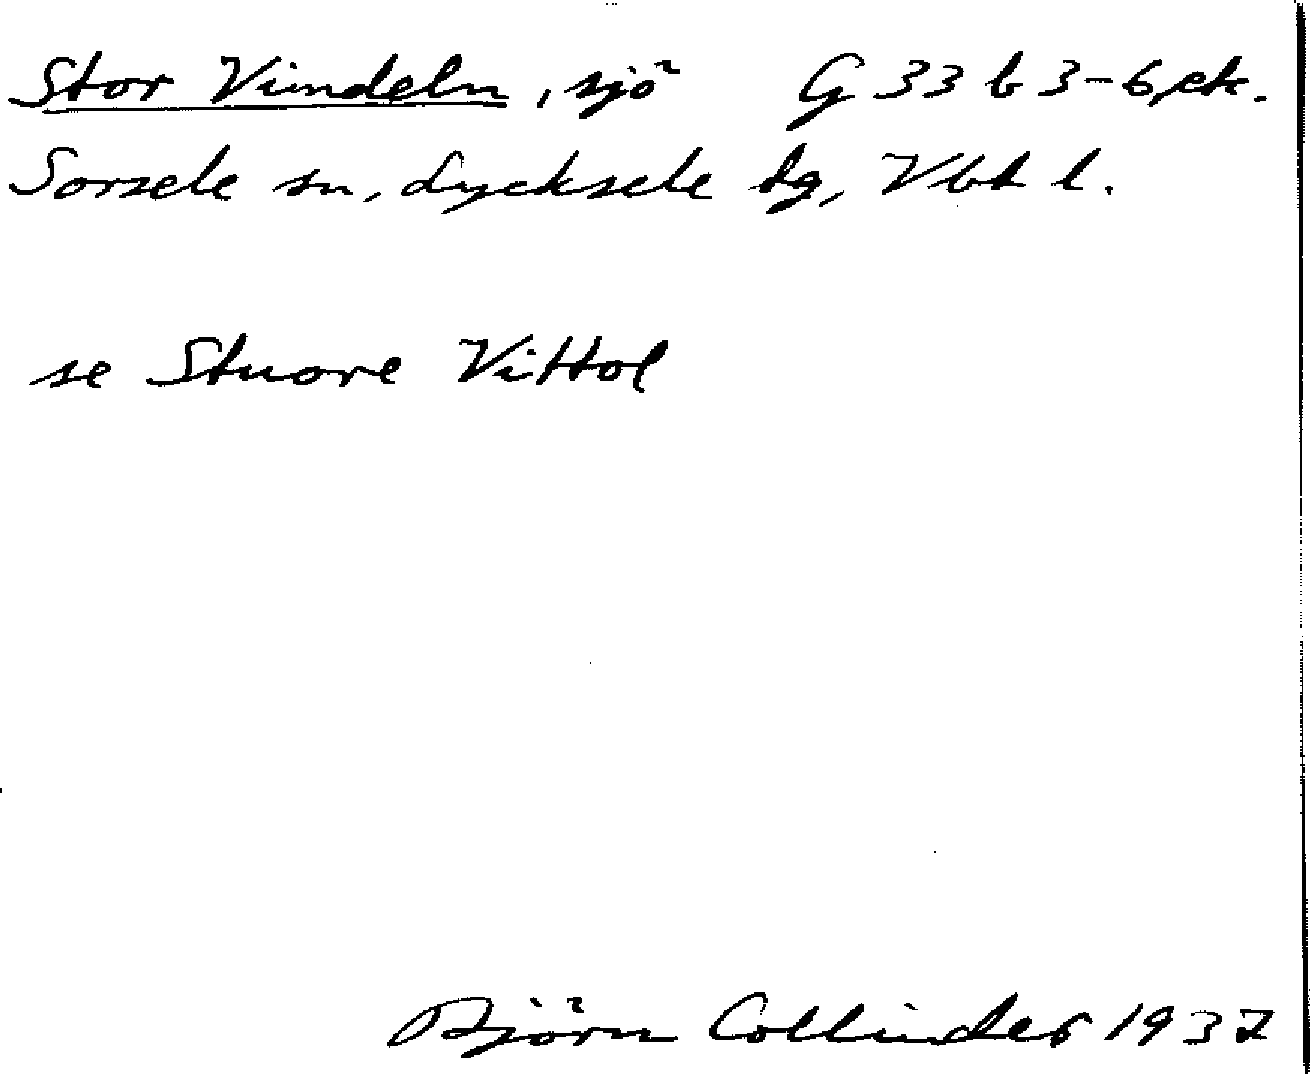 Stor Vindeln, sjö G 33 b 3-6, ek.
Sorsele sn, Lycksele dg, Vbt l.
se Stuore Vittol
Björn Collinder 1937